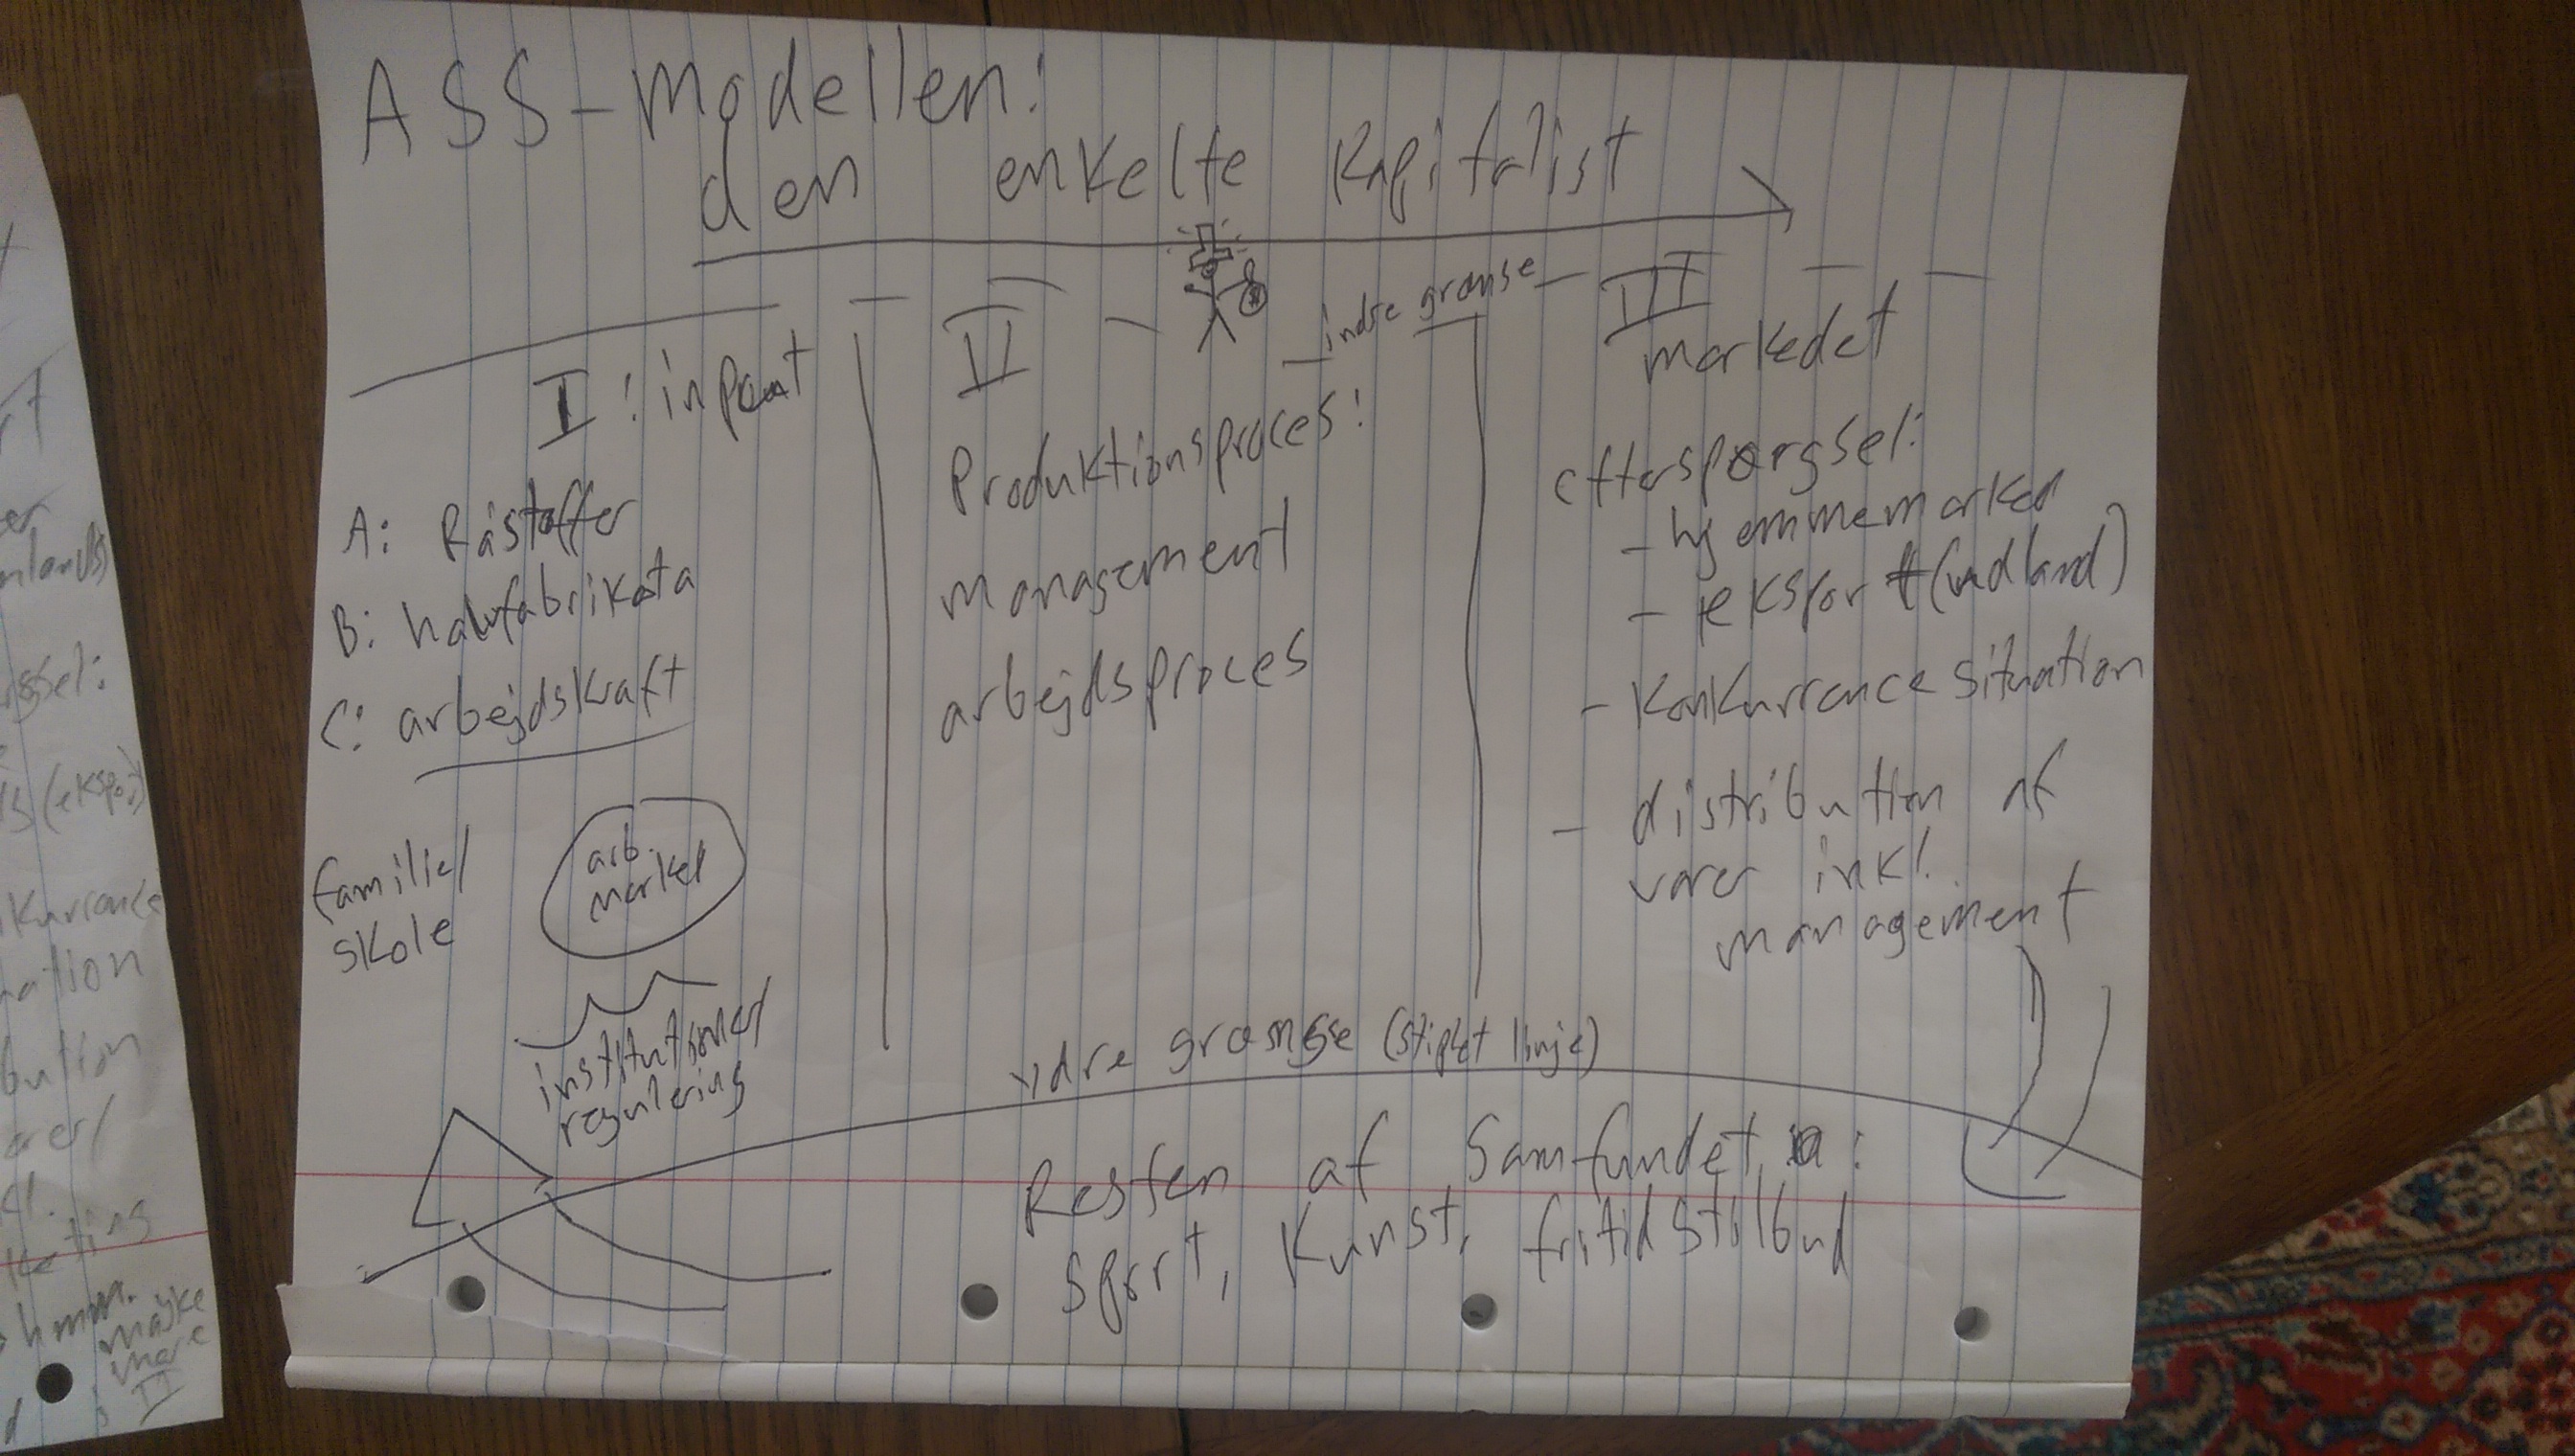 ASS-modellen:
den enkelte kapitalist
indre grænse
I: input
A: Råstoffer
B: halvfabrikata
C: arbejdskraft
familie/
skole
arb.
market
institutioner/
regulering
II
Produktionsproces:
management
arbejdsproces
III
markedet
efterspørgsel:
- hjemmemarked
- eksport (udland)
- konkurrence situation
- distribution af
varer inkl.
management
ydre grænse (stiplet linje)
Resten af samfundet:
sport, kunst, fritidstilbud
(eksport)
keting